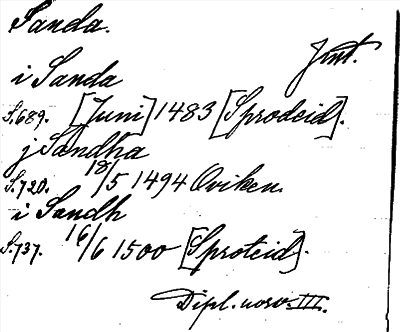 Sanda.
Jmt.
i Sanda
S. 689. [Juni] 1483 [Sprodeid].
j Sandha
S. 720. 18/5 1494 Oviken.
i Sandh
S. 737. 16/6 1500 [Sproteid].
Dipl. norv. III.